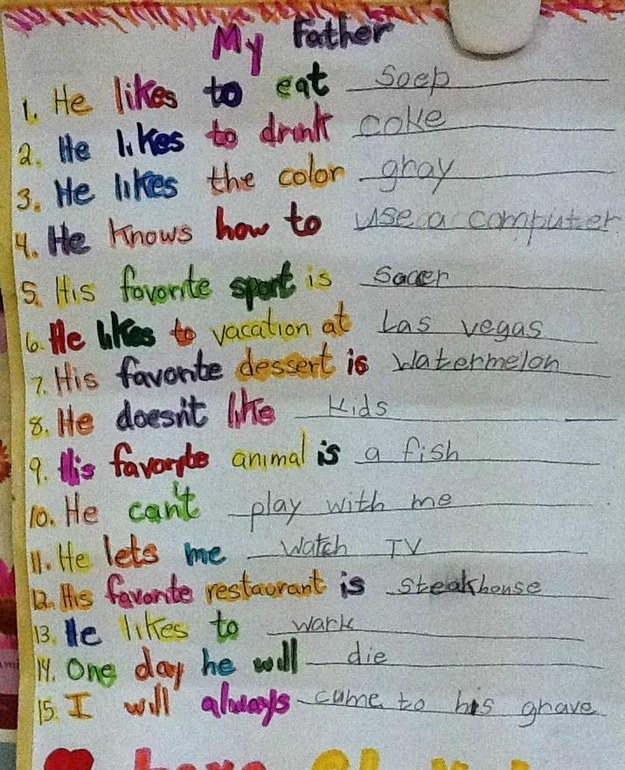 My Father
1. He likes to eat Soep
2. He likes to drink coke
3. He likes the color ghay
4. He knows how to use a computer
5. His favorite sport is Soccer
6. He likes to vacation at Las vegas
7. His favorite dessert is Watermelon
8. He doesn't like Kids
9. His favorite animal is a fish
10. He can't play with me
11. He lets me Watch TV
12. His favorite restaurant is Steakhouse
13. He likes to Wark
14. One day he will die
15. I will always came to his ghave